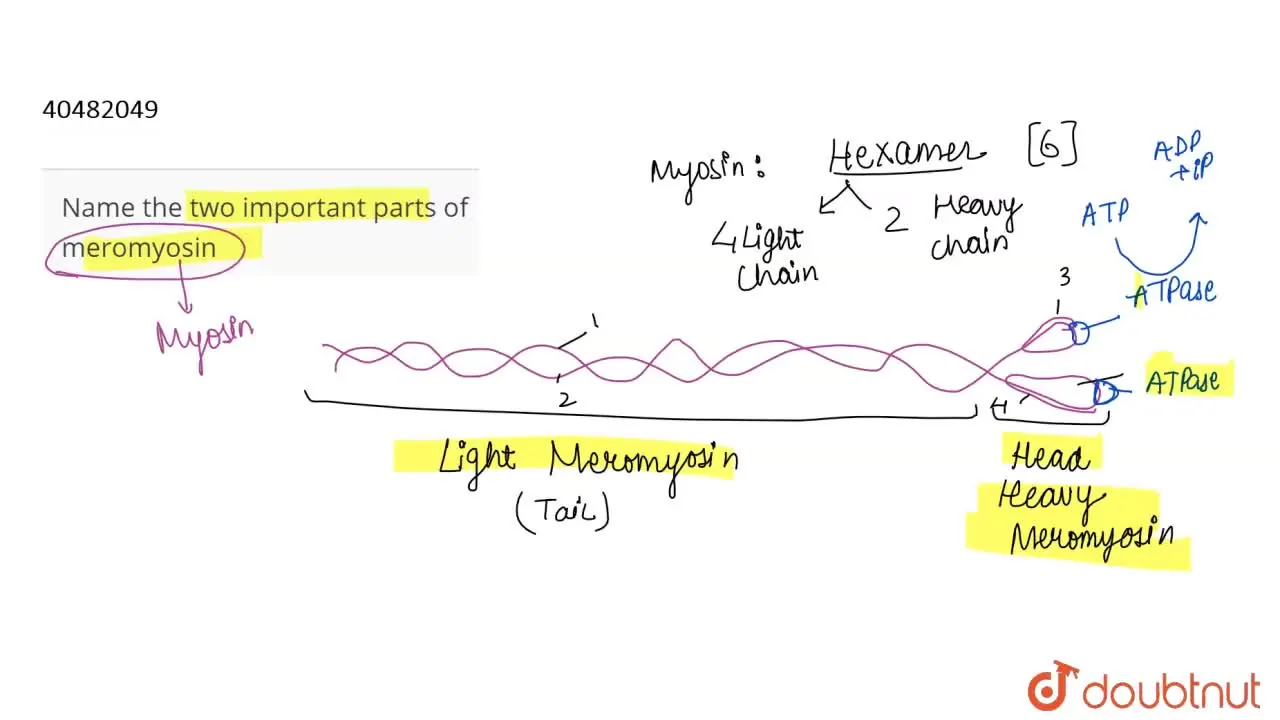 40482049
Name the two important parts of
meromyosin
Myosin
Myosin: Hexamer [6]
4 Light
Chain
2 Heavy
chain
ADP
+iP
ATP
ATPase
3
1
2
4
ATPase
Light Meromyosin
(Tail)
Head
Heavy
Meromyosin
doubtnut